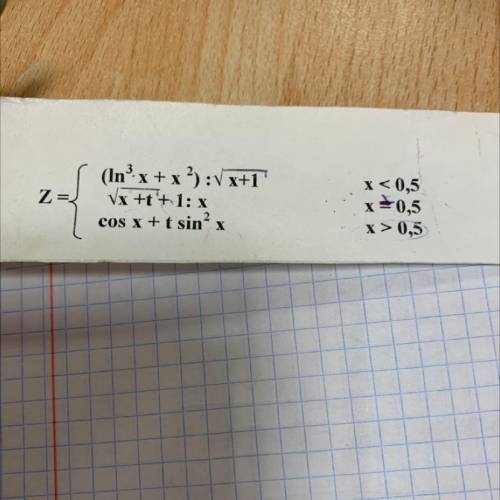 (ln³ x + x²) : √x+1 x < 0,5
Z = { √x +t + 1: x x = 0,5
cos x + t sin² x x > 0,5